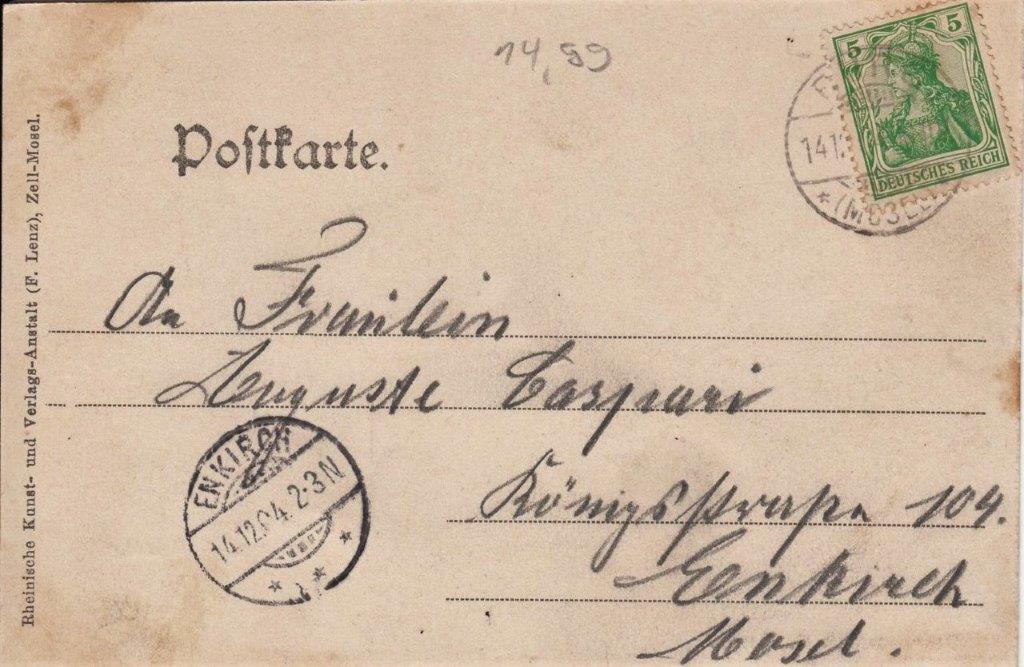 14,99
5 5
DEUTSCHES REICH
14.1
(MOSEL
Postkarte.
An Fräulein
Auguste Caspari
Königsstraße 104.
Enkirch
Mosel.
ENKIRCH
14.12.04.2-3N
Rheinische Kunst- und Verlags-Anstalt (F. Lenz), Zell-Mosel.